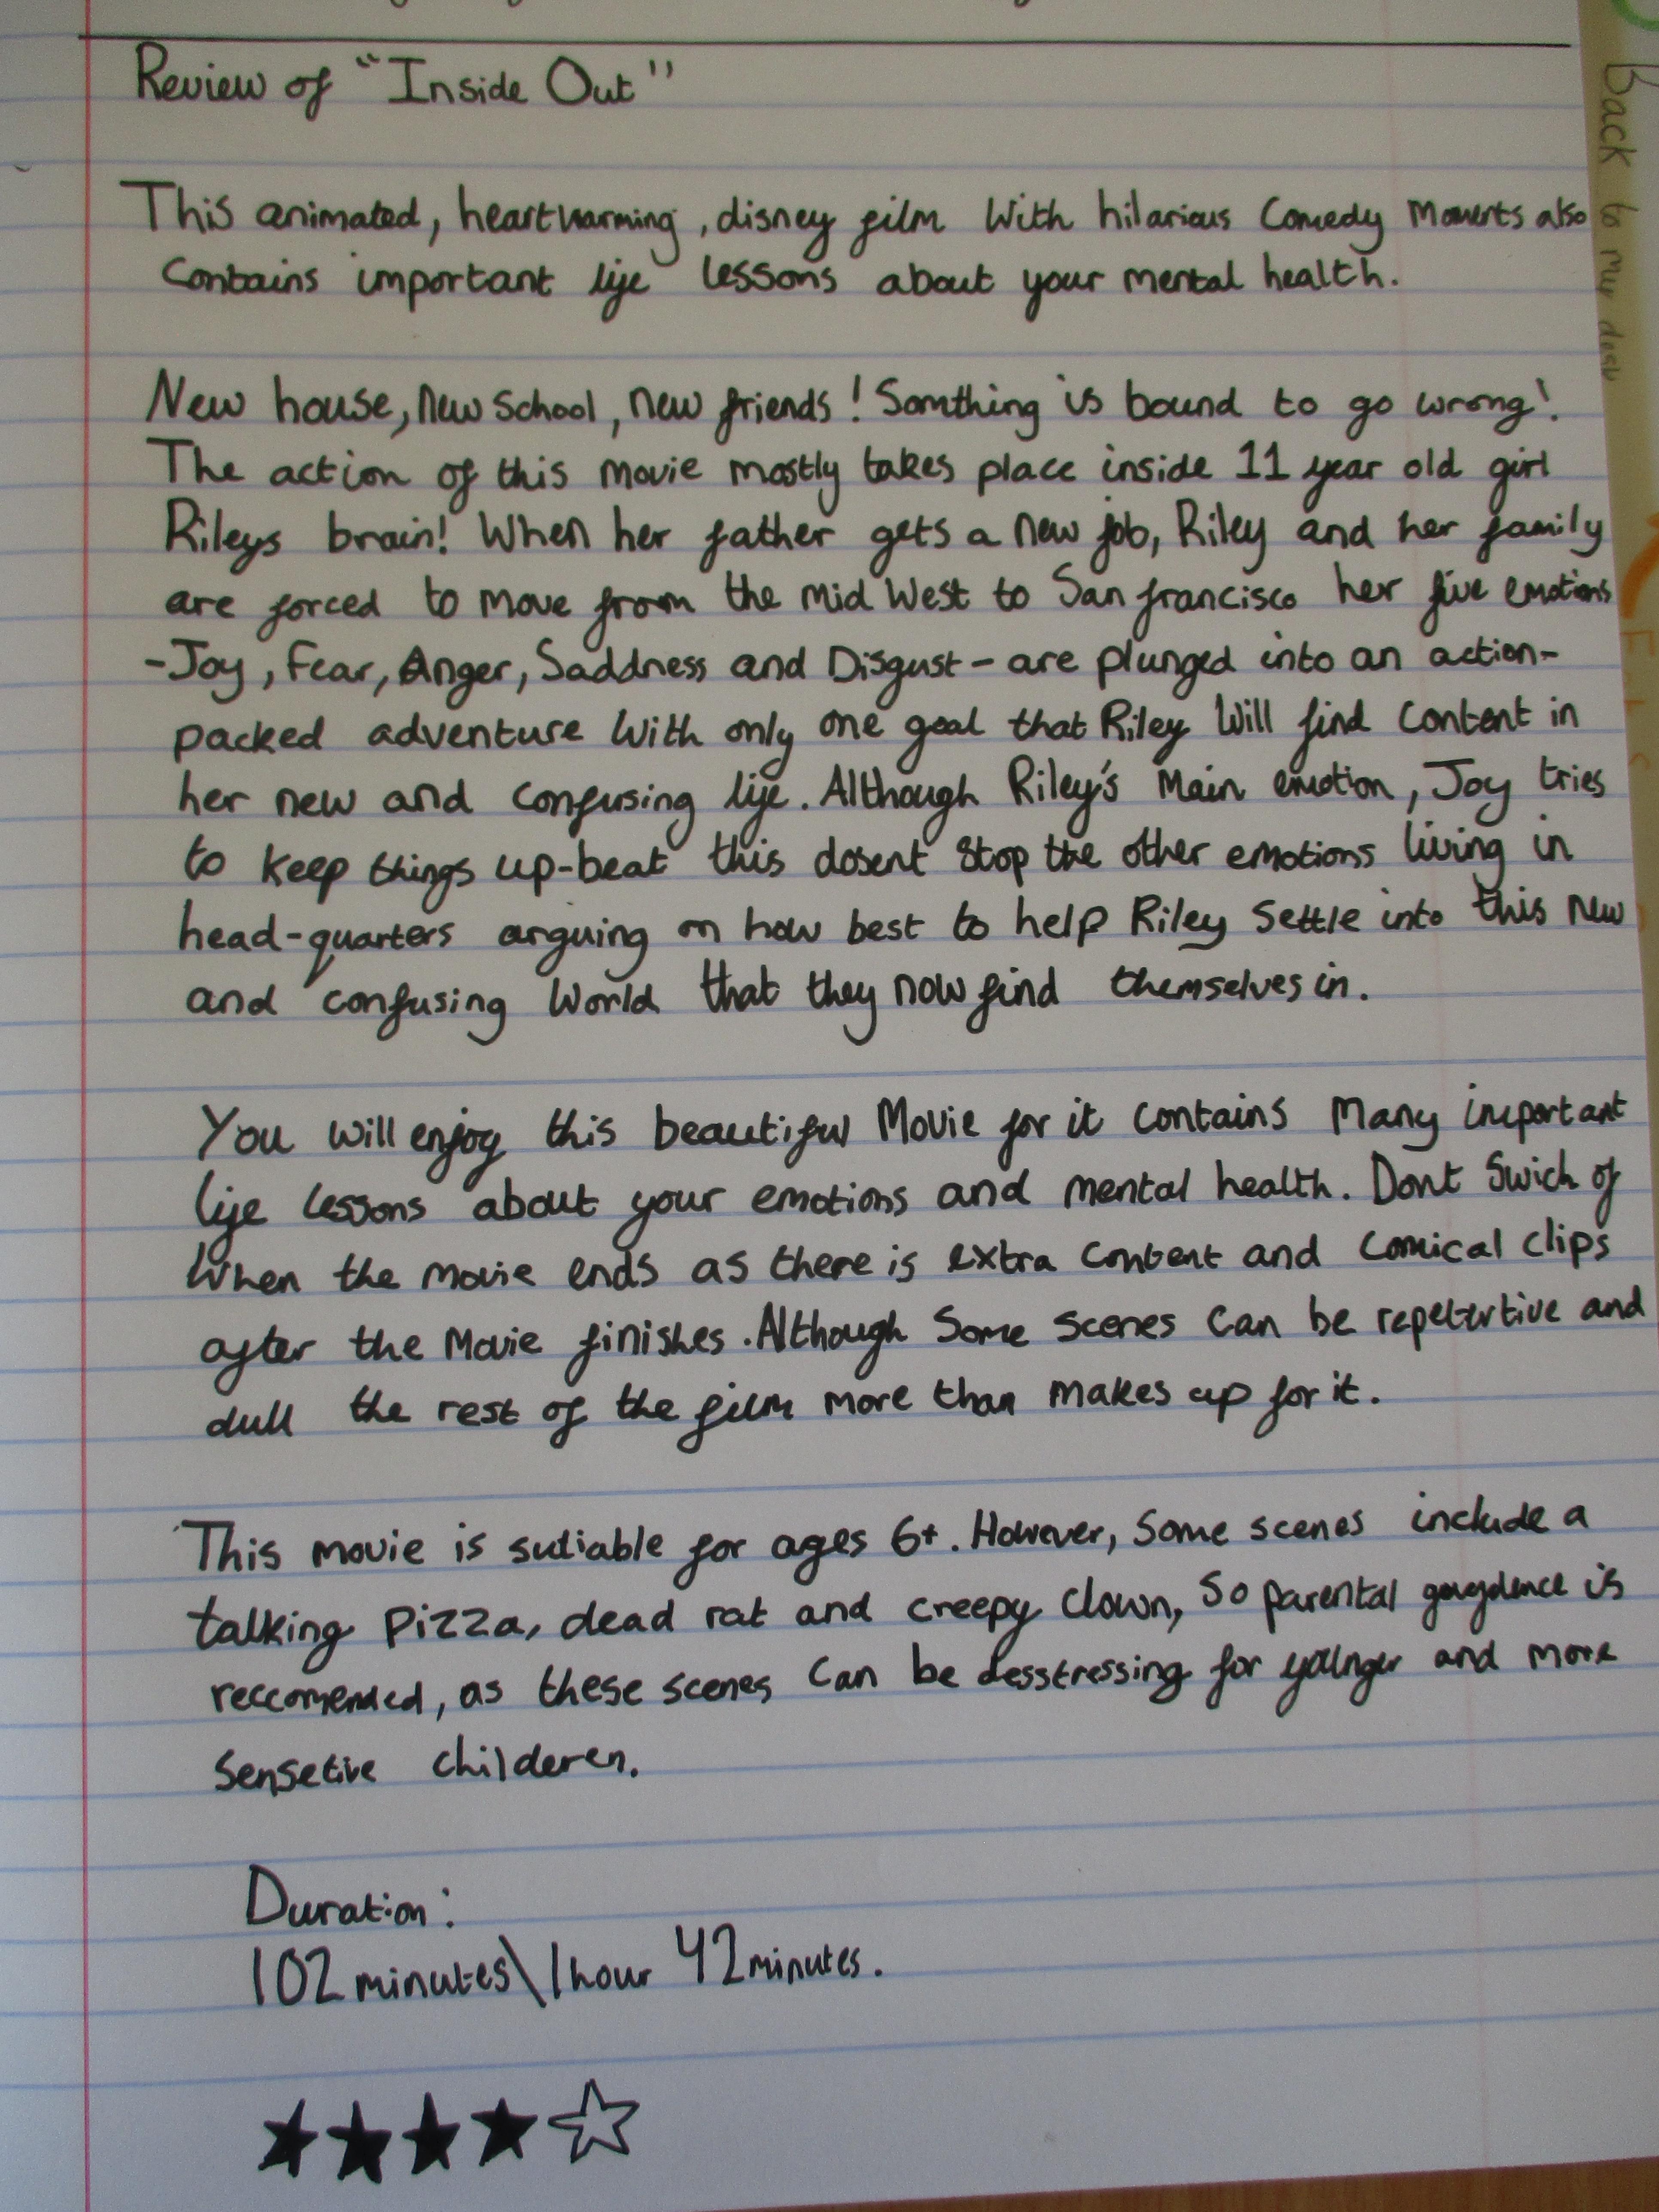 Review of "Inside Out"
This animated, heartwarming, disney film with hilarious Comedy Moments also
Contains important life lessons about your mental health.
New house, new school, new friends! Somthing is bound to go wrong!
The action of this movie mostly takes place inside 11 year old girl
Rileys brain! When her father gets a new job, Riley and her family
are forced to move from the mid West to San francisco her five emotions
-Joy, Fear, Anger, Saddness and Disgust- are plunged into an action-
packed adventure with only one goal that Riley will find content in
her new and confusing life. Although Riley's Main emotion, Joy tries
to keep things up-beat this dosent stop the other emotions living in
head-quarters arguing on how best to help Riley settle into this new
and confusing world that they now find themselves in.
You will enjoy this beautiful Movie for it contains Many important
life lessons about your emotions and mental health. Dont Swich of
when the movie ends as there is extra content and comical clips
after the Movie finishes. Although some scenes can be repetertive and
dull the rest of the film more than makes up for it.
This movie is sutiable for ages 6+. However, some scenes include a
talking pizza, dead rat and creepy clown, so parental is
reccomended, as these scenes can be desstressing for younger and more
sensetive childeren.
Duration:
102 minutes\1 hour 42 minutes.
Back to my desk